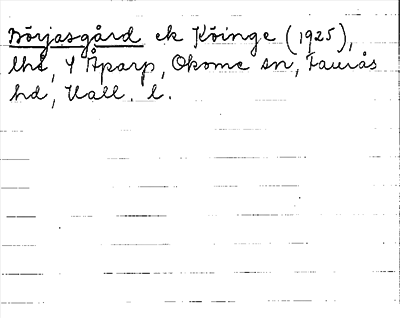 Börjasgård ek Köinge (1925),
lhe, Y Åparp, Okome sn, Faurås
hd, Hall. l.